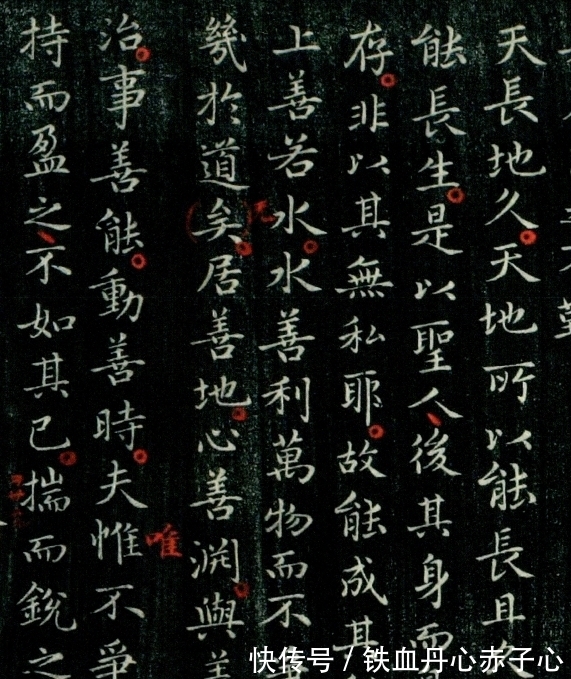 天長地久天地所以能長且久
能長生是以聖人後其身而
存非以其無私耶故能成其
上善若水水善利萬物而不
幾於道矣居善地心善淵與善
治事善能動善時夫惟不爭
唯
持而盈之不如其已揣而銳之
快传号 / 铁血丹心赤子心